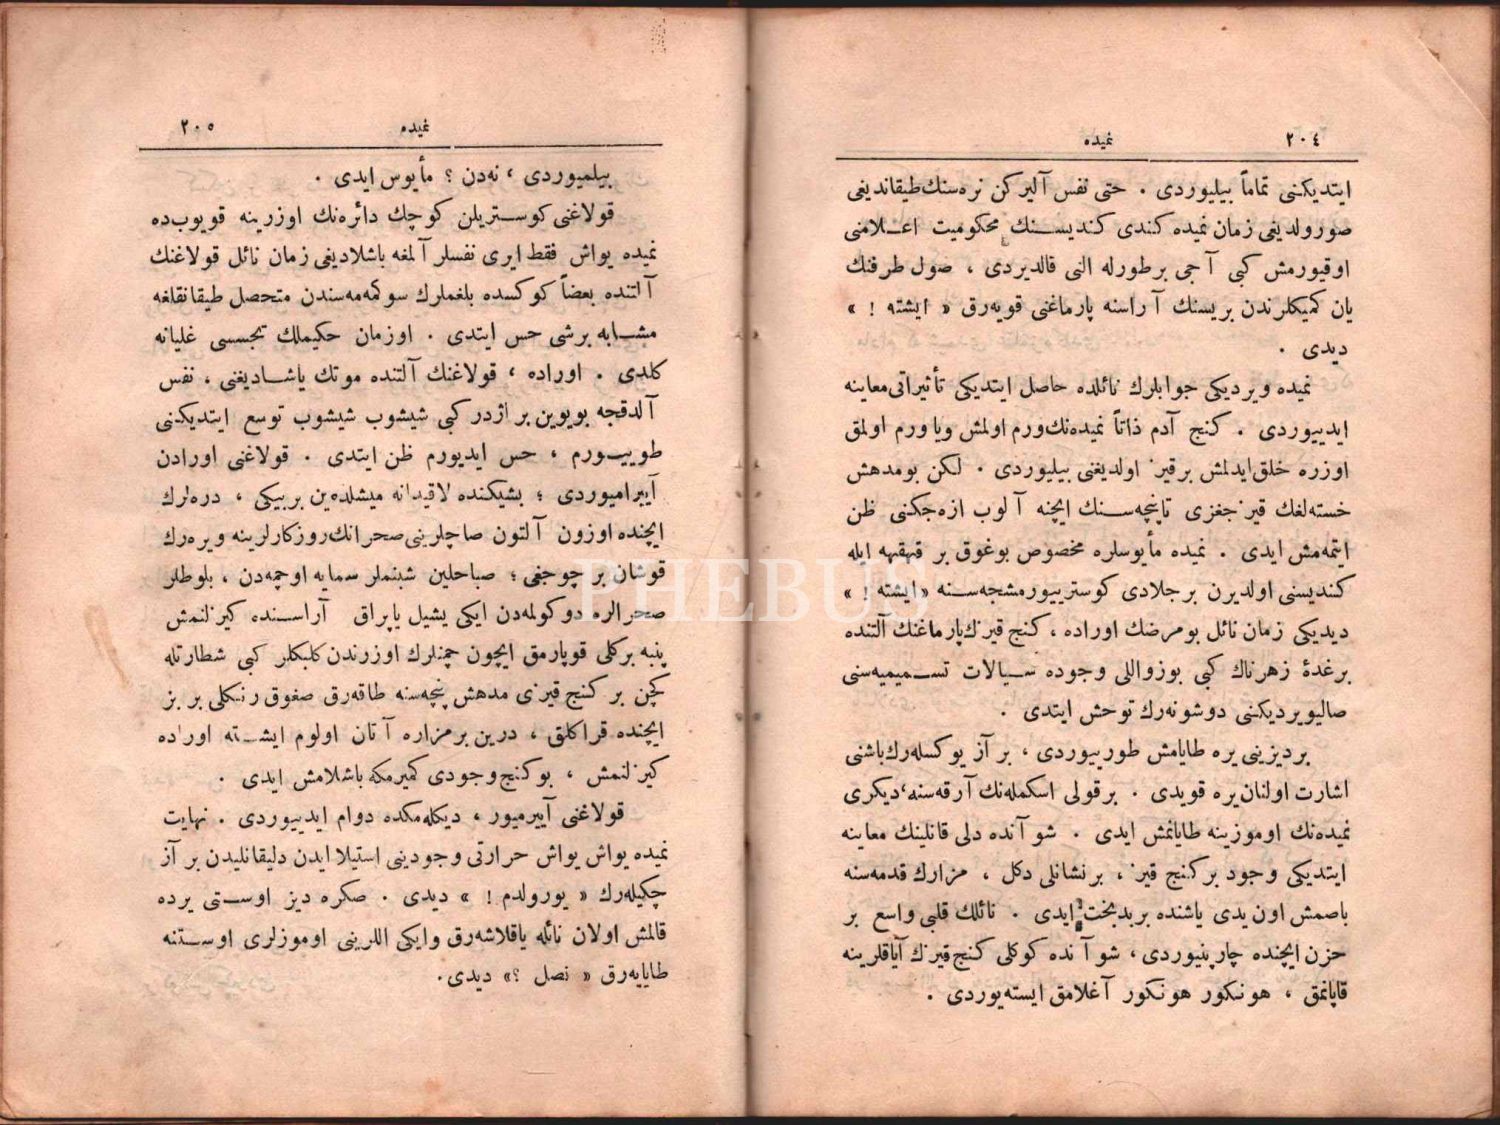 ٢٠٤
نمیده
ایتدیکنی تماماً بیلیوردی . حتی نفس آلیرکن نره‌سنك طیقاندیغی
صورولدیغی زمان نمیده کندی کندیسـنك محکومیت اعـلامنی
اوقیورمش کبی آجی بر طورله النی قالدیردی ، صول طرفنك
یان کمیکلرندن بریسنك آراسنه پارماغنی قویه‌رق « ایشته ! »
دیدی .
نمیده ویردیکی جوابلرك نائلده حاصل ایتدیکی تأثیراتی معاینه
ایدییوردی . کنج آدم ذاتاً نمیده‌نك ورم اولمش ویا ورم اولمق
اوزره خلق ایدلمش بر قیز اولدیغنی بیلیوردی . لکن بو مدهش
خسته‌لغك قیزجغزی تاپنچه‌سـنك ایچنه آلوب ازه‌جکنی ظن
ایتمه‌مش ایدی . نمیده مأیوسلره مخصوص بوغوق بر قهقهه ایله
کندیسنی اولدیرن بر جلادی کوسترییورمشجه‌سنه « ایشته ! »
دیدیکی زمان نائل بو مرضك اوراده ، کنج قیزك پارماغنك آلتنده
بر غدۀ زهرناك کبی بوزواللی وجوده سـیالات تسـمیمیه‌سنی
صالیویردیکنی دوشونه‌رك توحش ایتدی .
بر دیزینی یره طایامش طورییوردی ، بر آز یوکسله‌رك باشنی
اشارت اولنان یره قویدی . بر قولی اسکمله‌نك آرقه‌سنه ، دیکری
نمیده‌نك اوموزینه طایانمش ایدی . شو آنده دلی قانلینك معاینه
ایتدیکی وجود بر کنج قیز ، بر نشانلی دکل ، مزارك قدمه‌سنه
باصمش اون یدی یاشنده بر بدبخت ایدی . نائلك قلبی واسع بر
حزن ایچنده چارپنیوردی ، شو آنده کوکلی کنج قیزك آیاقلرینه
قاپانمق ، هونکور هونکور آغلامق ایسته‌یوردی .
٢٠٥
نمیده
بیلمیوردی ، نه‌دن ؟ مأیوس ایدی .
قولاغنی کوسـتریلن کوچك دائره‌نك اوزرینه قویوب ده
نمیده یواش فقط ایری نفسلر آلمغه باشلادیغی زمان نائل قولاغنك
آلتنده بعضاً کوکسده بلغملرك سوکمه‌سندن متحصل طیقانقلغه
مشـابه بر شی حس ایتدی . اوزمان حکیملك تجسسی غلیانه
کلدی . اوراده ، قولاغنك آلتنده موتك یاشـادیغنی ، نفس
آلدقجه بویوین بر اژدر کبی شیشوب شیشوب توسع ایتدیکنی
طویییـورم ، حس ایدیورم ظن ایتدی . قولاغنی اورادن
آییرامیوردی ؛ بشیکنده لاقیدانه میشلده‌ین بر بیکی ، دره‌لرك
ایچنده اوزون آلتون صاچلرینی صحرانك روزکارلرینه ویره‌رك
قوشان بر چوجغی ؛ صباحلین شبنملر سمایه اوچمه‌دن ، بلوطلر
صحرالره دوکولمه‌دن ایکی یشیل یاپراق آراسـنده کیزلنمش
پنبه بر کلی قوپارمق ایچون چمنلرك اوزرندن کلبکلر کبی شطارتله
کچن بر کنج قیزی مدهش پنچه‌سنه طاقه‌رق صغوق رنکلی بر بز
ایچنده قراکلق ، درین بر مزاره آتان اولوم ایشـته اوراده
کیزلنمش ، بو کنج وجودی کمیرمکه باشلامش ایدی .
قولاغنی آییرمیور ، دیکله‌مکده دوام ایدییوردی . نهایت
نمیده یواش یواش حرارتی وجودینی استیلا ایدن دلیقانلیدن بر آز
چکیله‌رك « یورولدم ! » دیدی . صکره دیز اوسـتی یرده
قالمش اولان نائله یاقلاشه‌رق وایکی اللرینی اوموزلری اوسـتنه
طایایه‌رق « نصل ؟ » دیدی .
PHEBUS